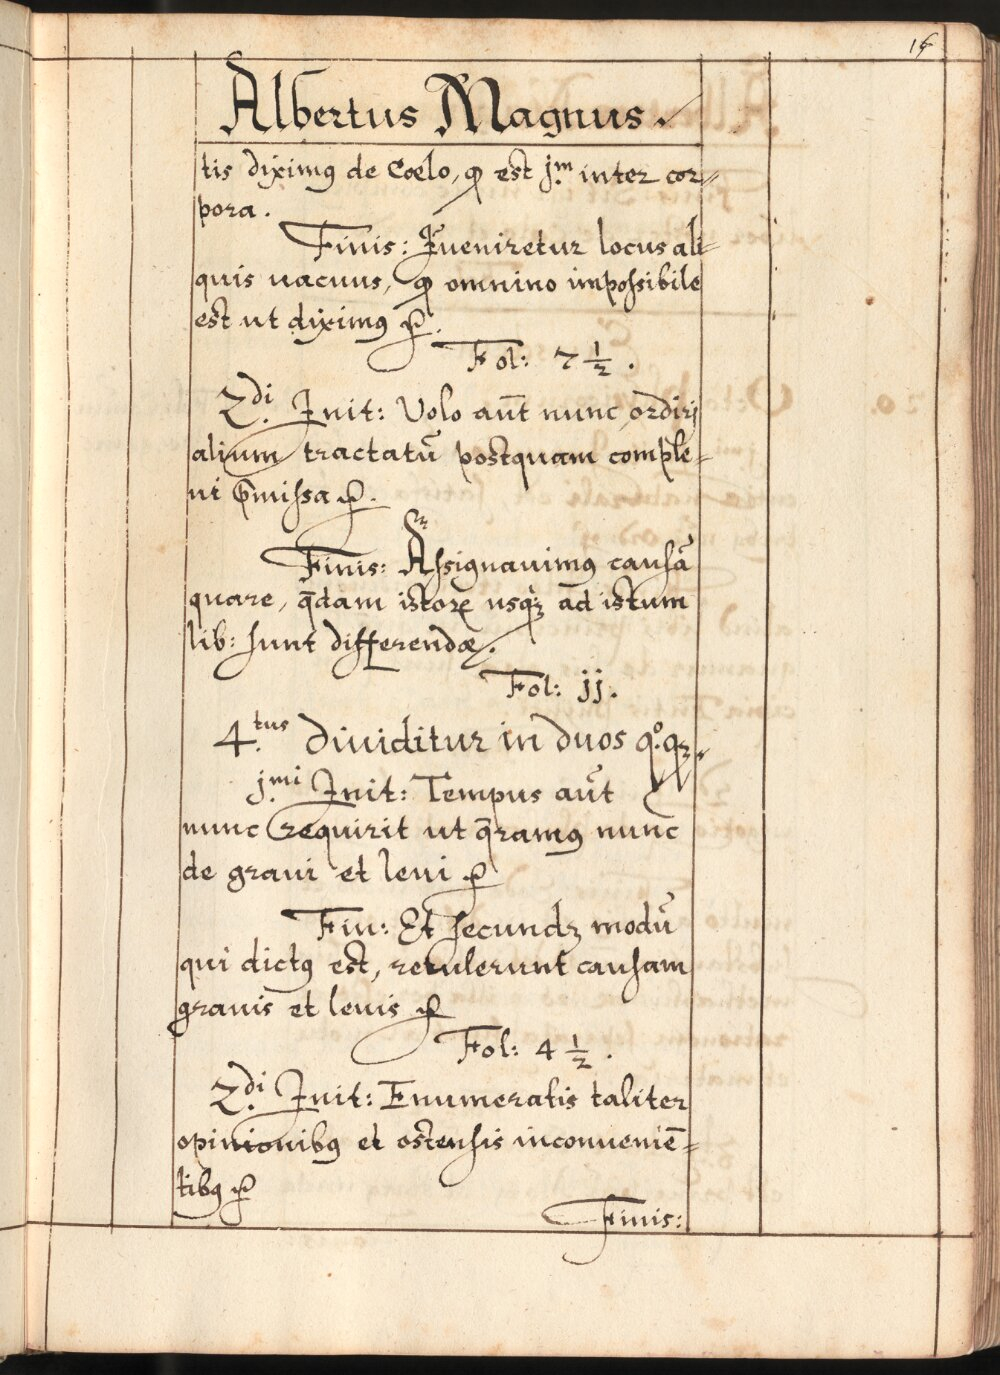 16
Albertus Magnus.
tis diximꝰ de Coelo, qđ est jm. inter cor=
pora.
Finis: Inueniretur locus ali=
quis uacuus, qđ omnino impossibile
est ut diximꝰ ꝛc.
Fol: 7 1/2.
2di. Init: Volo aūt nunc ordiri
alium tractatū postquam comple=
ui p̄missa ꝛc.
Finis: Assignauimꝰ causā
quare, q̄dam istoꝝ usqꝫ ad istum
lib: sunt differendæ.
Fol: jj.
4.tus Diuiditur in duos qo.qꝫ.
jmi. Init: Tempus aūt
nunc requirit ut q̄ramꝰ nunc
de graui et leui ꝛc
Fin: Et secundꝫ modū
qui dictꝰ est, retulerunt causam
grauis et leuis ꝛc
Fol: 4 1/2.
2di. Init: Enumeratis taliter
opinionibꝰ et ostensis inconueniē=
tibꝰ ꝛc
Finis: